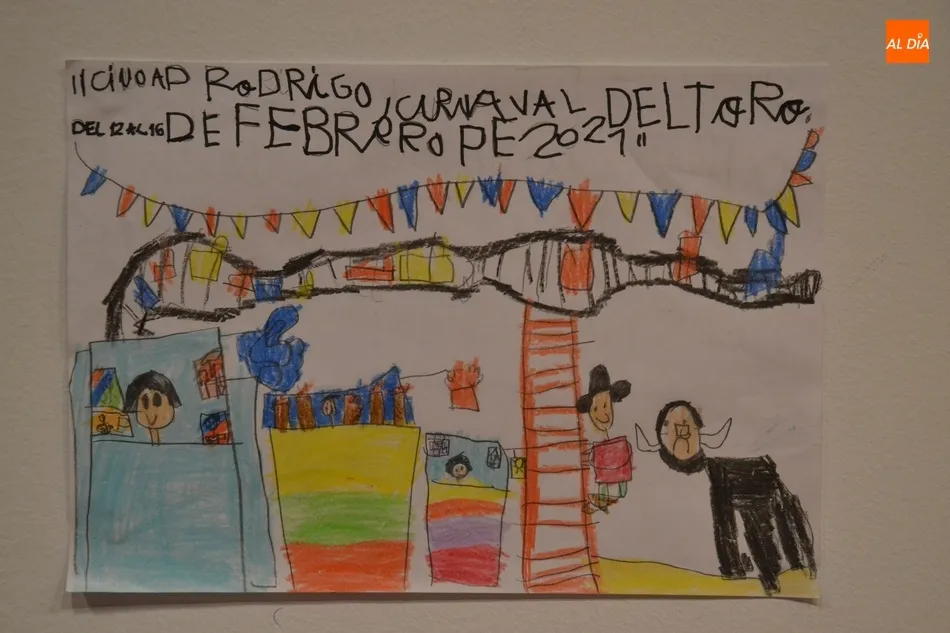 "CIUDAD RODRIGO, CURNAVAL DEL TORO.
DEL 12 AL 16 DE FEBRRERO PE 2021"
AL DÍA